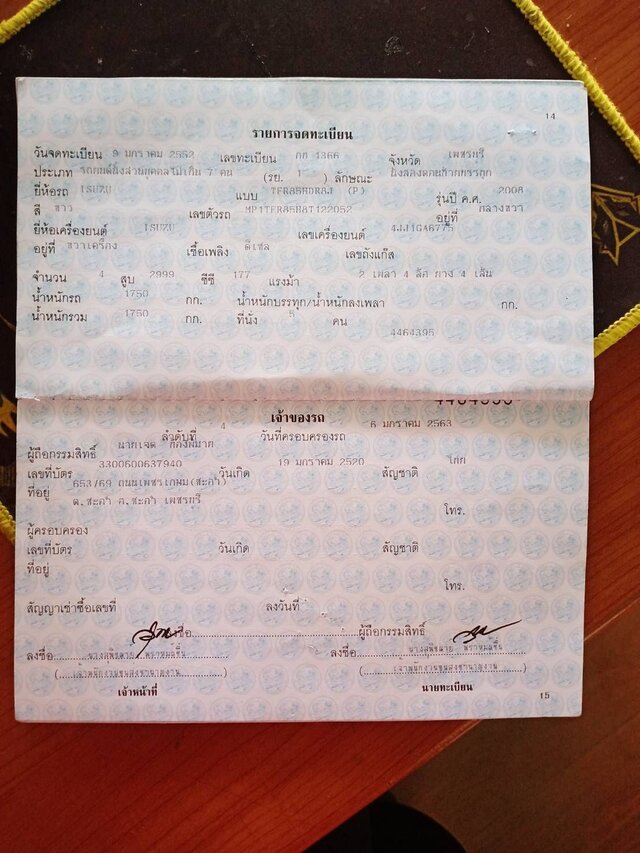 14
รายการจดทะเบียน
วันจดทะเบียน 9 มกราคม 2552 เลขทะเบียน กก 1366 จังหวัด เพชรบุรี
ประเภท รถยนต์นั่งส่วนบุคคลไม่เกิน 7 คน (รย. 1 ) ลักษณะ นั่งสองตอนท้ายบรรทุก
ยี่ห้อรถ ISUZU แบบ TFR85HDRAJ (P) รุ่นปี ค.ศ. 2008
สี ขาว เลขตัวรถ MP1TFR85H8T122052 อยู่ที่ กลางขวา
ยี่ห้อเครื่องยนต์ ISUZU เลขเครื่องยนต์ 4JJ1GA6775
อยู่ที่ ขวาเครื่อง เชื้อเพลิง ดีเซล เลขถังแก๊ส
จำนวน 4 สูบ 2999 ซีซี 177 แรงม้า 2 เพลา 4 ล้อ ยาง 4 เส้น
น้ำหนักรถ 1750 กก. น้ำหนักบรรทุก/น้ำหนักลงเพลา กก.
น้ำหนักรวม 1750 กก. ที่นั่ง 5 คน
4464395
เจ้าของรถ
ลำดับที่ 4 วันที่ครอบครองรถ 6 มกราคม 2563
ผู้ถือกรรมสิทธิ์ นายเจต
เลขที่บัตร 3300600637940 วันเกิด 19 มกราคม 2520 สัญชาติ ไทย
ที่อยู่ 653/69 ถนนเพชรเกษม(ชะอำ)
ต.ชะอำ อ.ชะอำ เพชรบุรี
โทร.
ผู้ครอบครอง
เลขที่บัตร วันเกิด สัญชาติ
ที่อยู่
โทร.
สัญญาเช่าซื้อเลขที่ ลงวันที่
ลงชื่อ ผู้ถือกรรมสิทธิ์
ลงชื่อ ลงชื่อ
(เจ้าพนักงานขนส่งชำนาญงาน) (เจ้าพนักงานขนส่งชำนาญงาน)
เจ้าหน้าที่ นายทะเบียน
15